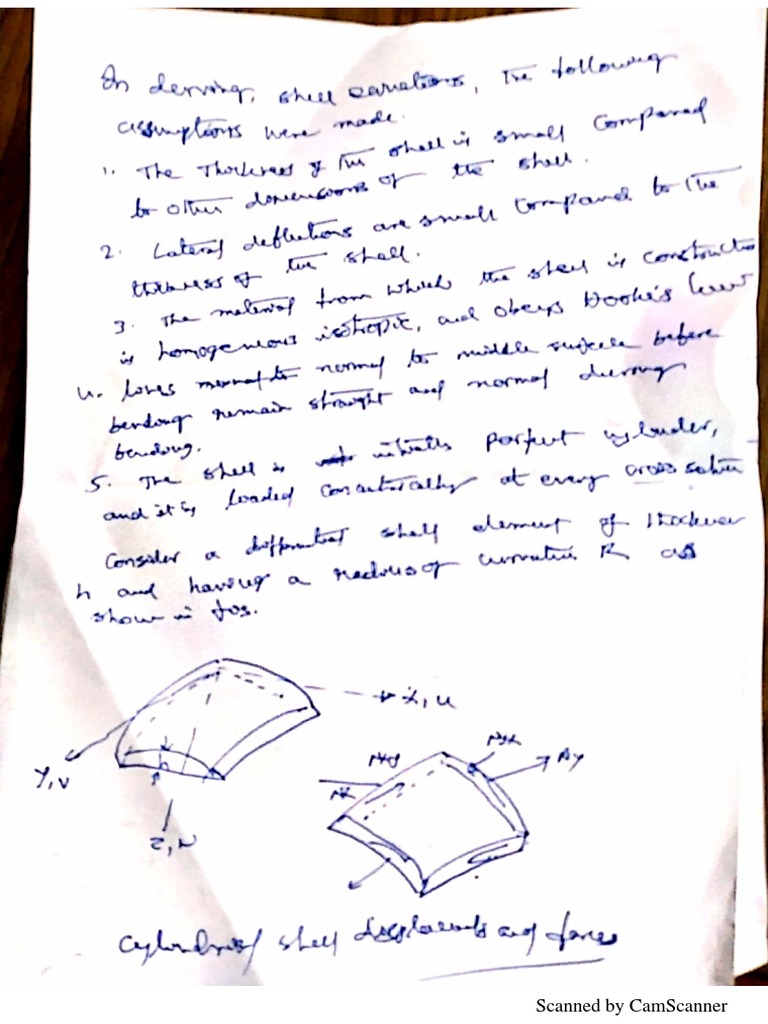 In deriving, shell equations, the following
assumptions were made.
1. The Thickness of the shell is small compared
to other dimensions of the shell.
2. Lateral deflections are small compared to the
thickness of the shell.
3. The material from which the shell is constructed
is homogeneous isotropic, and obeys Hooke's law
4. lines normal to middle surface before
bending remain straight and normal during
bending.
5. The shell is initially perfect cylinder,
and it is loaded concentrically at every cross section
Consider a differential shell element of thickness
h and having a radius of curvature R as
shown in fig.
x, u
Nxy
Nyx
Ny
Y, v
Nx
h
z, w
Cylindrical shell displacements and forces
Scanned by CamScanner